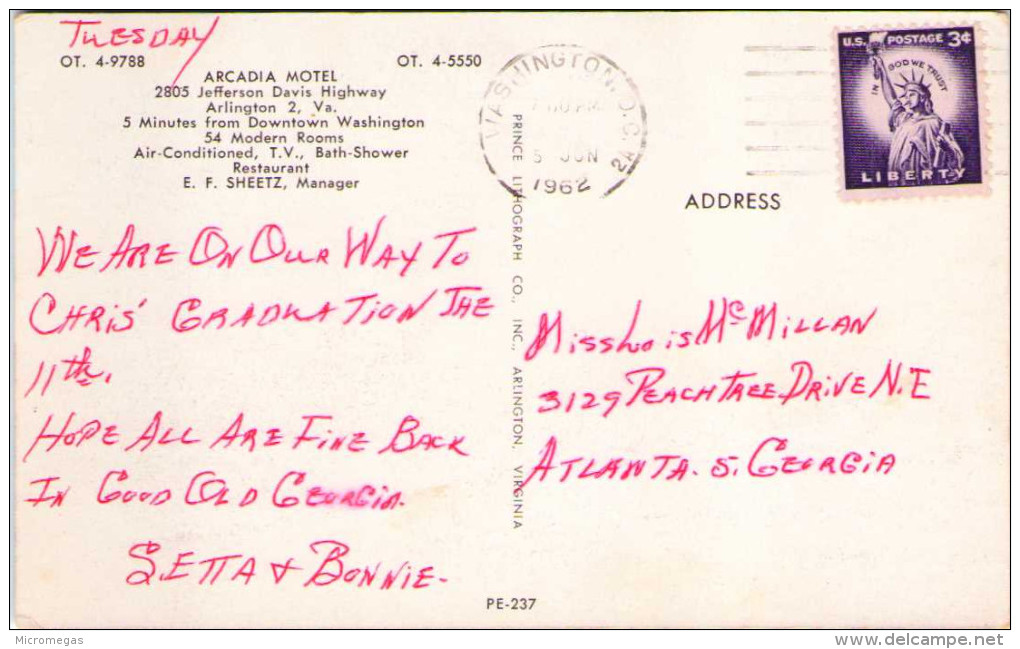 TUESDAY
OT. 4-9788 OT. 4-5550
ARCADIA MOTEL
2805 Jefferson Davis Highway
Arlington 2, Va.
5 Minutes from Downtown Washington
54 Modern Rooms
Air-Conditioned, T.V., Bath-Shower
Restaurant
E. F. SHEETZ, Manager
WE ARE ON OUR WAY TO
CHRIS' GRADUATION THE
11th.
HOPE ALL ARE FINE BACK
IN GOOD OLD GEORGIA.
SETTA & BONNIE-
PRINCE LITHOGRAPH CO., INC., ARLINGTON, VIRGINIA
WASHINGTON, D.C.
5 JUN
1962
2A
U.S. POSTAGE 3¢
IN GOD WE TRUST
LIBERTY
ADDRESS
Miss Lois McMILLAN
3129 PEACHTREE DRIVE N.E
ATLANTA. 5. GEORGIA
PE-237
Micromegas
delcampe.net